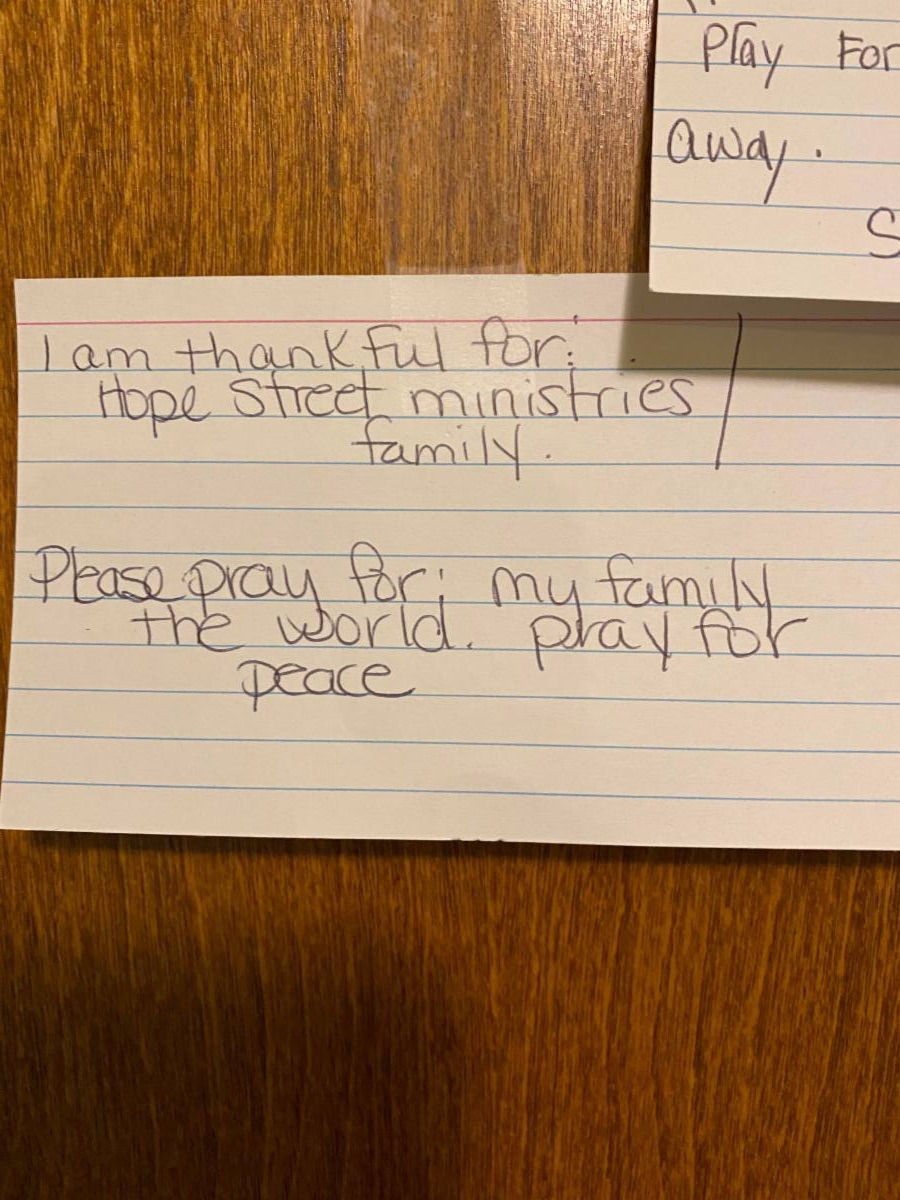 Play For
away.
S
I am thankful for:
Hope Street ministries
family.
Please pray for: my family
the world. pray for
peace